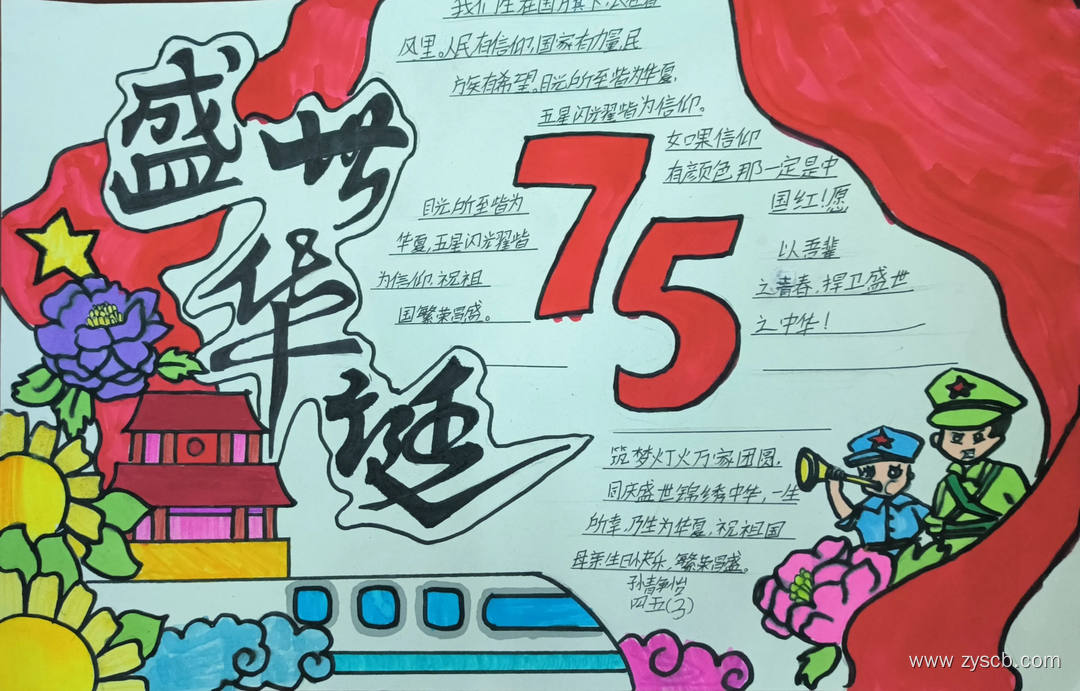 盛世华诞
我们生在国旗下,长在春
风里。人民有信仰,国家有力量,民
族有希望。目光所至皆为华夏,
五星闪耀皆为信仰。
75
女如果信仰
有颜色那一定是中
国红!愿
以吾辈
之青春,捍卫盛世
之中华!
目光所至皆为
华夏,五星闪光耀皆
为信仰.祝祖
国繁荣昌盛。
筑梦灯火万家团圆.
国庆盛世锦绣中华,一生
所幸,乃生为华夏,祝祖国
母亲生日快乐,繁荣昌盛。
四五(3)
www.zyscb.com